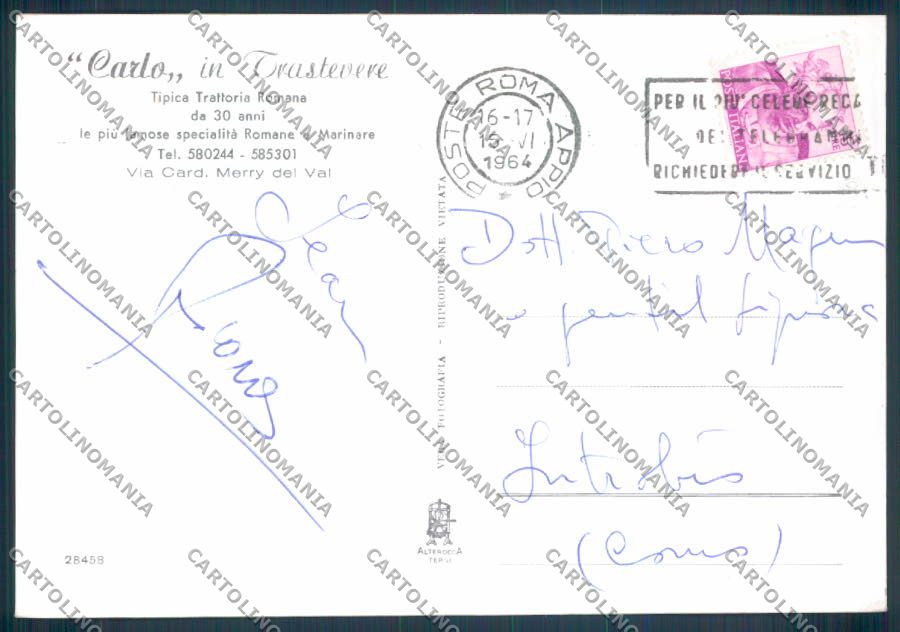 "Carlo„ in Trastevere
Tipica Trattoria Romana
da 30 anni
le più famose specialità Romane e Marinare
Tel. 580244 - 585301
Via Card. Merry del Val
28458
VERA FOTOGRAFIA - RIPRODUZIONE VIETATA
ALTEROCCA
TERNI
POSTE ROMA APPIO
16-17
VI
1964
POSTE ITALIANE
PER IL PIÙ CELERE RECA
DEI TELEGRAMMI
RICHIEDERE IL SERVIZIO
Dott Piero
e gentil
(Como)
CARTOLINOMANIA